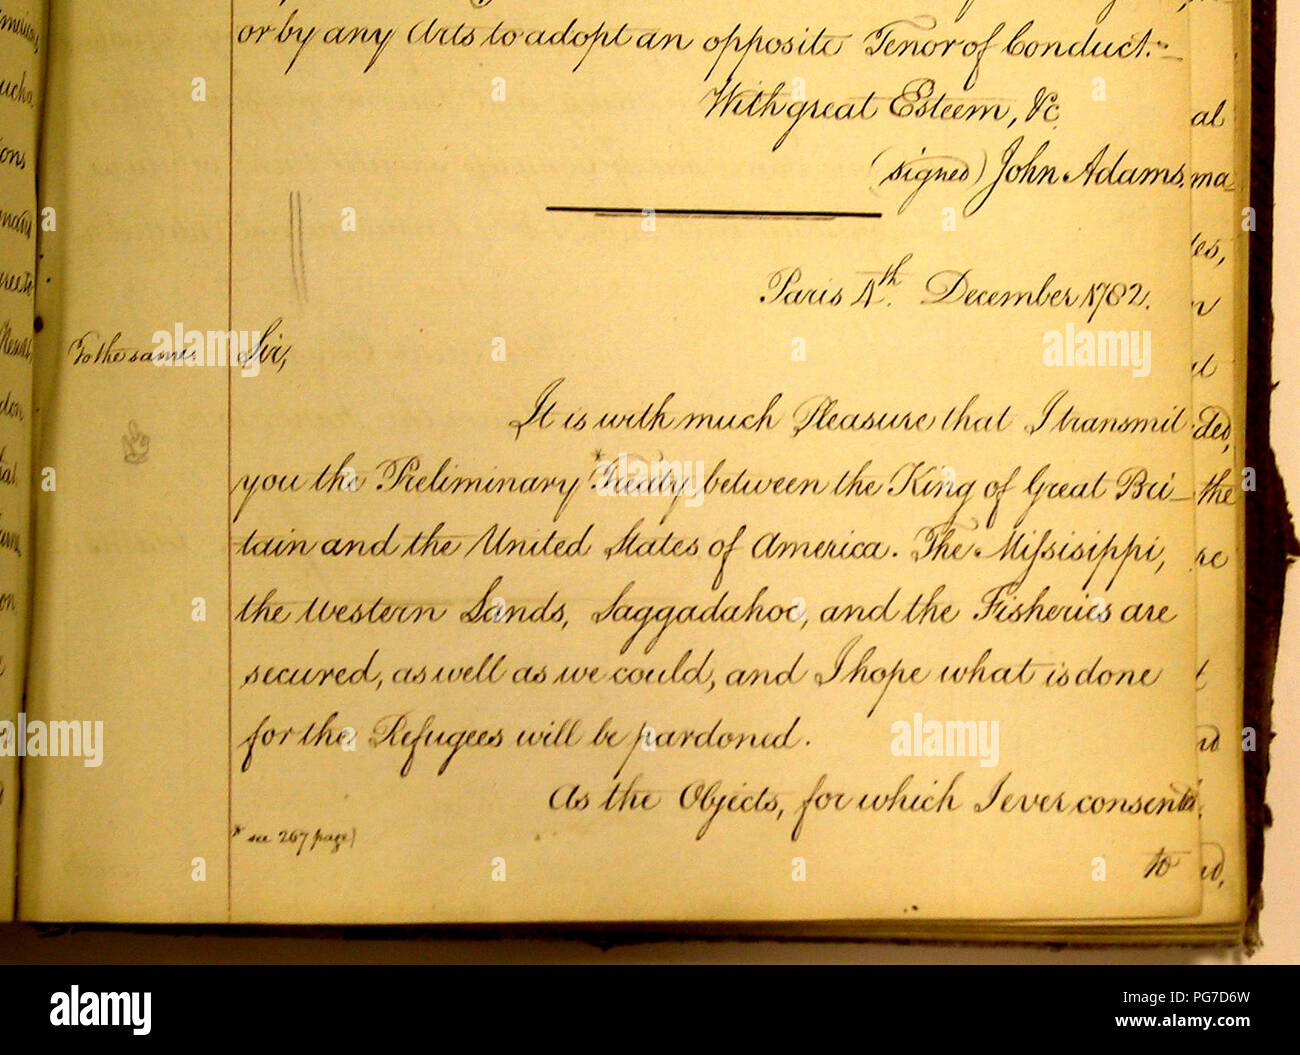 or by any Arts to adopt an opposite Tenor of Conduct.
With great Esteem, &c.
(signed) John Adams.
Paris 4th. December 1782.
To the same.
Sir,
It is with much Pleasure that I transmit
you the Preliminary *Treaty between the King of Great Bri-
tain and the United States of America. The Missisippi,
the Western Lands, Saggadahoc, and the Fisheries are
secured, as well as we could, and I hope what is done
for the Refugees will be pardoned.
As the Objects, for which I ever consented
* see 267 page)
to
alamy
Image ID: PG7D6W
www.alamy.com